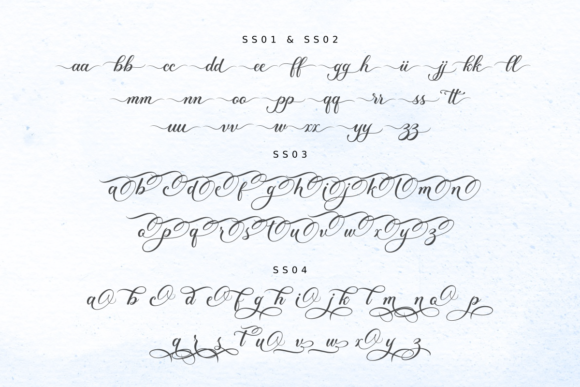 SS01 & SS02
aa bb cc dd ee ff gg h ii jj kk ll
mm nn oo pp qq rr ss tt
uu vv w xx yy zz
SS03
a b c d e f g h i j k l m n
o p q r s t u v w x y z
SS04
a b c d e f g h i j k l m n o p
q r s t u v w x y z